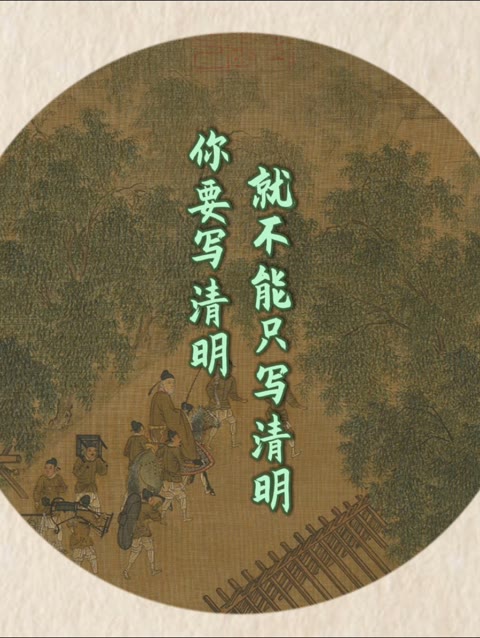 你要写清明
就不能只写清明